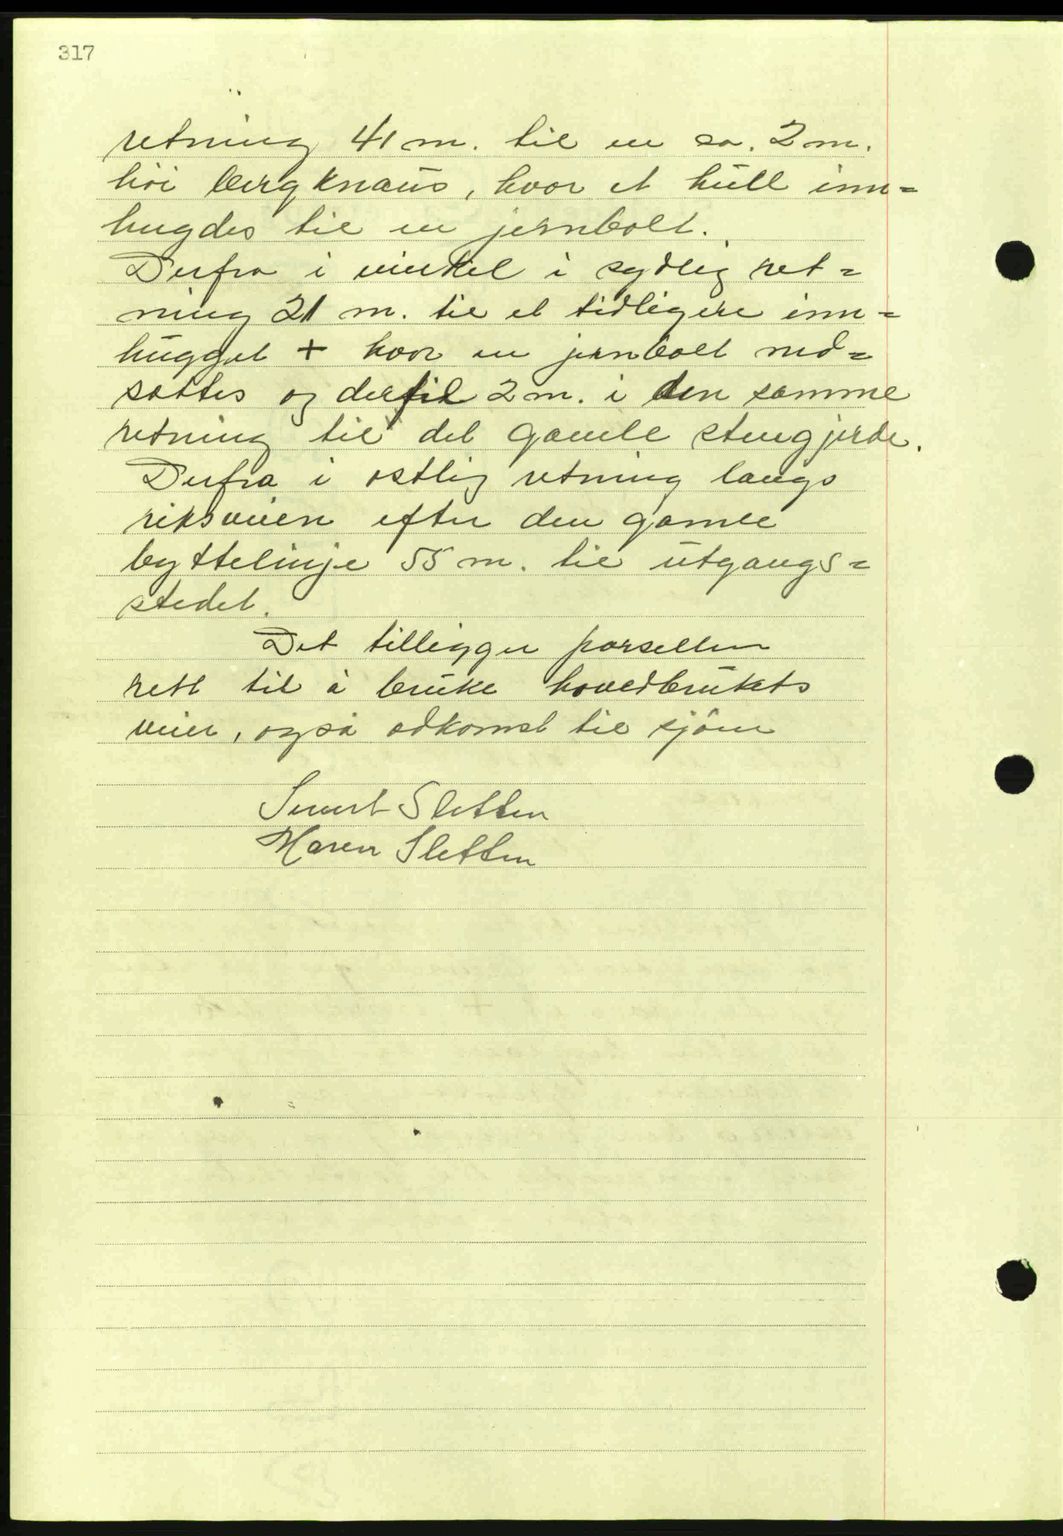 317
retning 41 m. til en ca. 2 m.
höi bergknaus, hvor et hull inn=
hugdes til en jernbolt.
Derfra i vinkel i sydlig ret=
ning 21 m. til et tidligere inn=
hugget + hvor en jernbolt ned=
sattes og dertil 2 m. i den samme
retning til det gamle stengjerde.
Derfra i östlig retning langs
riksveien efter den gamle
byttelinje 55 m. til utgangs=
stedet.
Det tilligger parsellen
rett til å bruke hovedbrukets
veier, også adkomst til sjöen
Sivert Sletten
Maren Sletten